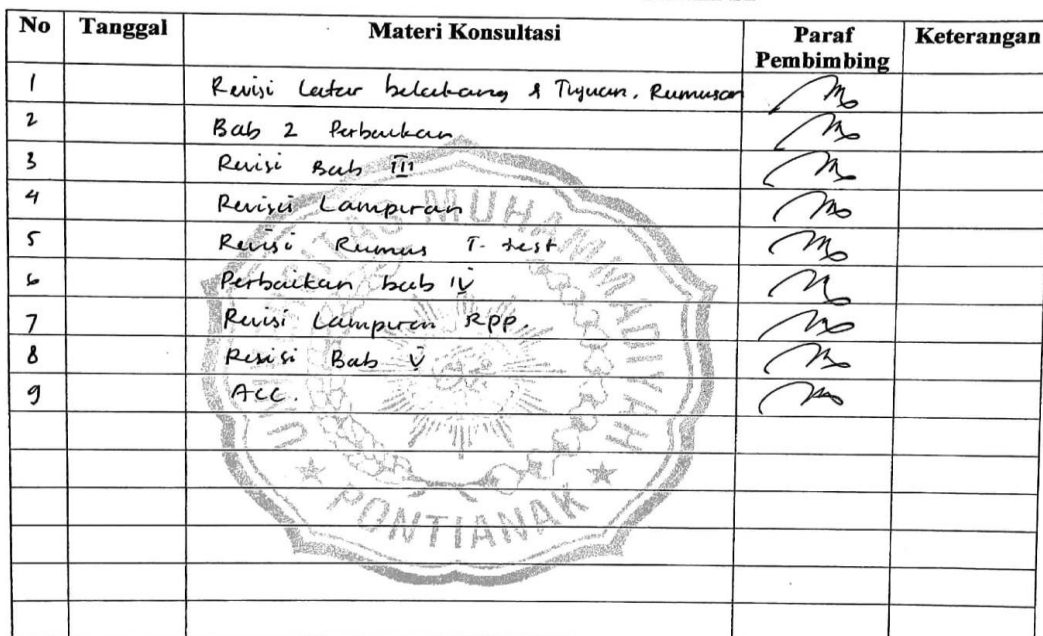 No Tanggal Materi Konsultasi Paraf Pembimbing Keterangan
1 Revisi Latar belakang & Tujuan, Rumusan
2 Bab 2 Perbaikan
3 Revisi Bab III
4 Revisi Lampiran
5 Revisi Rumus T-test
6 Perbaikan bab IV
7 Revisi Lampiran RPP.
8 Revisi Bab V
9 ACC.
MUHAMMADIYAH
PONTIANAK